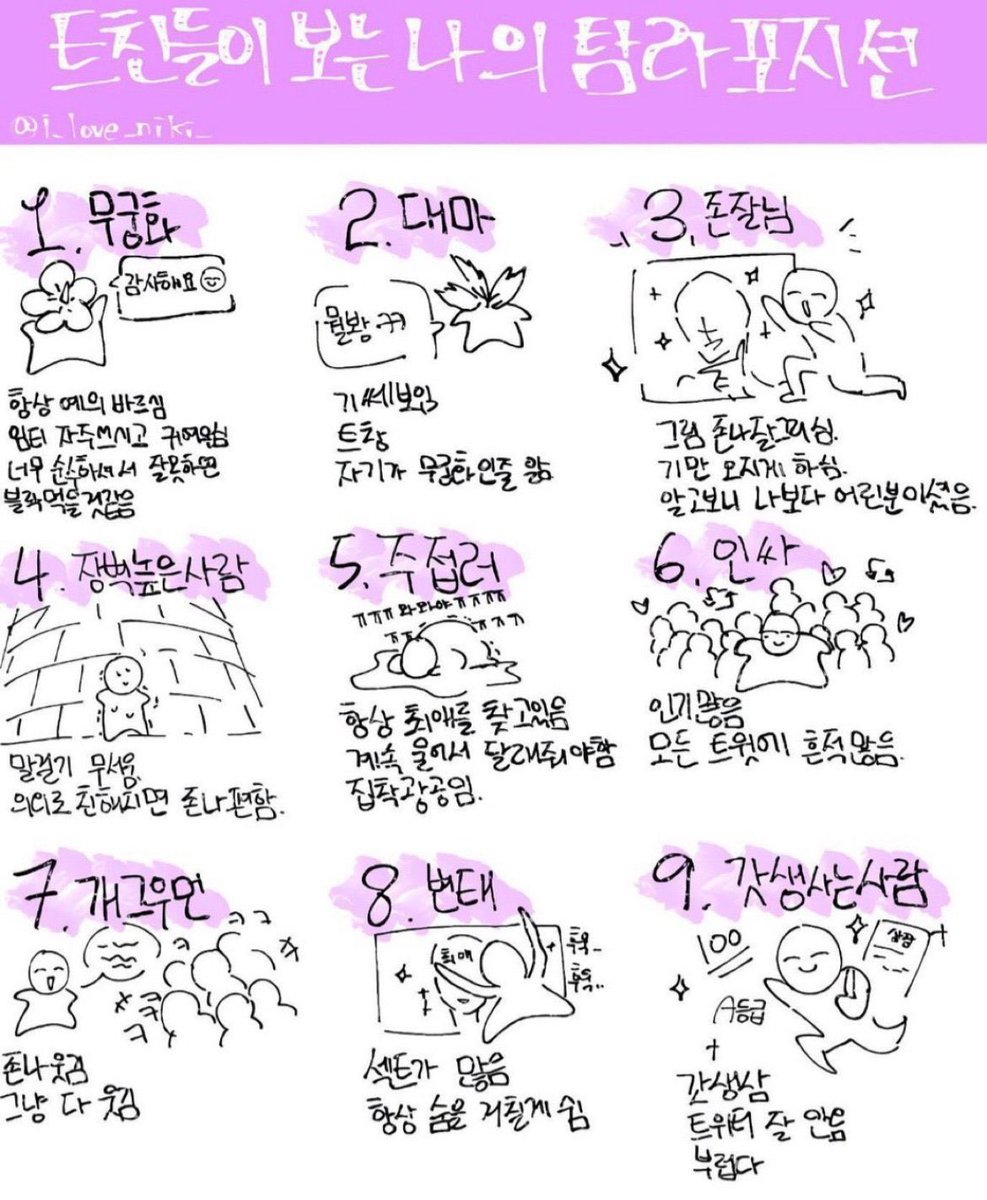 트친들이 보는 나의 탐라 포지션
@i_love_niki_
1. 무궁화
감사해요
항상 예의 바르심
임티 자주쓰시고 귀여우심
너무 순수하셔서 잘못하면
불락먹을것같음
2. 대마
뭘봐 ㄲㄲ
기 쎄보임
트창
자기가 무궁화인줄 앎
3. 존잘님
그림 존나잘그리심.
기만 오지게 하심.
알고보니 나보다 어린분이셨음.
4. 장벽높은사람
말걸기 무서움.
의외로 친해지면 존나편함.
5. 주접러
ㅠㅠㅠ와라야ㅠㅠㅠㅠ
ㅠㅠ ㅠㅠㅠ
항상 최애를 찾고있음
계속 울어서 달래줘야함
집착광공임.
6. 인싸
인기많음
모든 트윗에 흔적많음.
7. 개그우먼
ㅋㅋ
ㅋ
ㅋㅋ
ㅋㅋ
ㅋ
존나웃김
그냥 다 웃김
8. 변태
최애
후욱..
후욱..
섹트가 많음
항상 숨을 거칠게 쉼
9. 갓생사는사람
100
상장
A등급
+
갓생삼
트위터 잘 안옴
부럽다